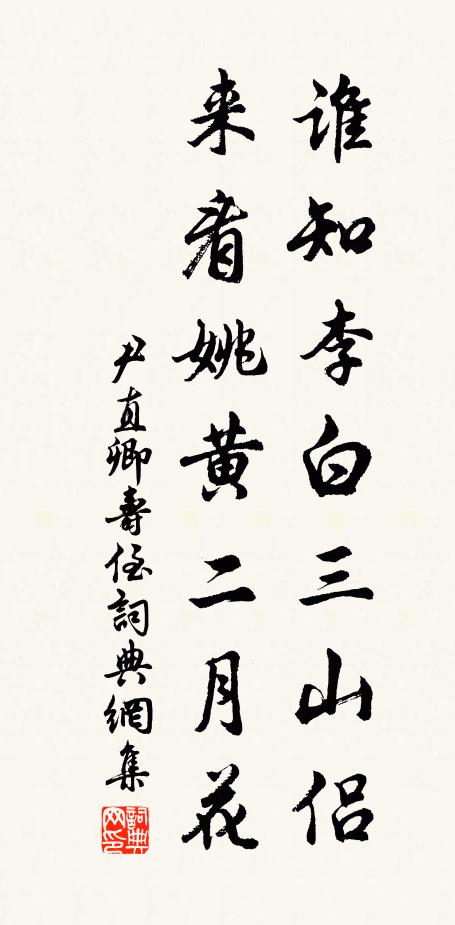 谁知李白三山侣
来看姚黄二月花
尹直卿壽侄詞典網集
詞典网印